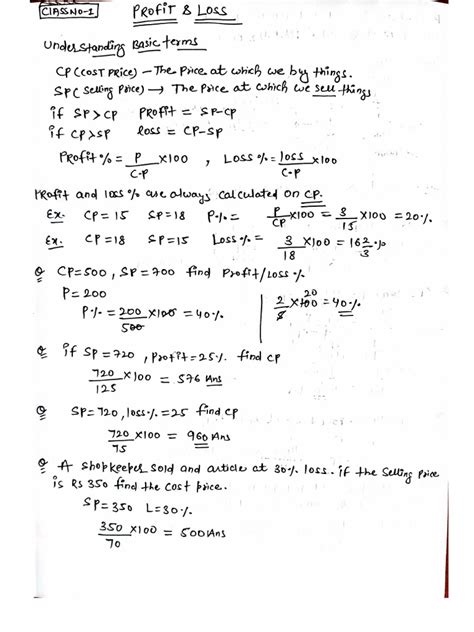 CLASS NO-1 PROFIT & LOSS
Understanding Basic terms
CP (COST PRICE) – The Price at which we by things.
SP ( Selling Price) → The Price at which we sell things
if SP > CP Profit = SP-CP
if CP > SP loss = CP-SP
Profit % = P/C.P × 100 , Loss % = loss/C.P × 100
Profit and loss % are always calculated on CP.
Ex. CP = 15 SP = 18 P.% = P/CP × 100 = 3/15 × 100 = 20 %
Ex. CP = 18 SP = 15 Loss % = 3/18 × 100 = 16 2/3 %
Q CP = 500, SP = 700 find Profit/Loss %
P = 200
P% = 200/500 × 100 = 40 % 2/5 × 100 20 = 40 %
Q if SP = 720, profit = 25 %. find CP
720/125 × 100 = 576 Ans
Q SP = 720, loss % = 25 find CP
720/75 × 100 = 960 Ans
Q A Shopkeeper Sold and article at 30 % loss. if the Selling Price
is Rs 350 find the Cost price.
SP = 350 L = 30 %
350/70 × 100 = 500 Ans